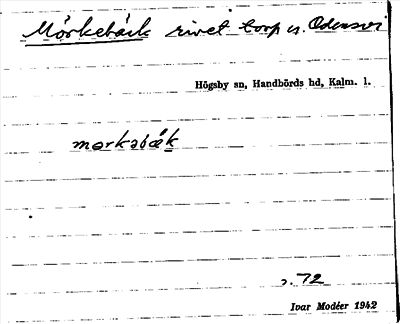 Mörkebäck rivet torp u. Odensvi
Högsby sn, Handbörds hd, Kalm. l.
mərkəbæk
s. 72
Ivar Modéer 1942